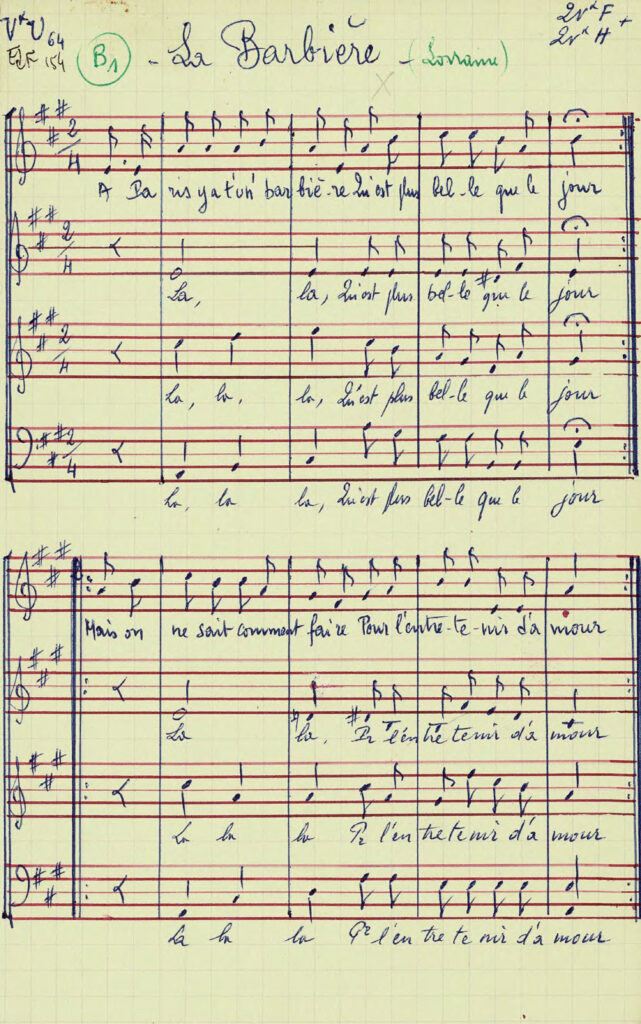 VXU 64
EdF 154
B1 - La Barbière - (Lorraine)
2vx F +
2vx H
2/4
A Pa ris y a t'un' bar biè-re Qu'est plus bel-le que le jour
2/4
La, la, Qu'est plus bel-le que le jour
2/4
La, la, la, Qu'est plus bel-le que le jour
2/4
La, la la, Qu'est plus bel-le que le jour
Mais on ne sait comment faire Pour l'entre-te-nir d'a mour
La la, Pr l'en tre te nir d'a mour
La la la Pr l'en tre te nir d'a mour
La la la Pr l'en tre te nir d'a mour